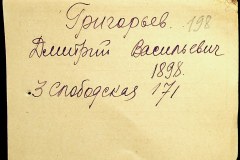 Григорьев. 198
Дмитрий Васильевич
1898.
3 Слободская 171